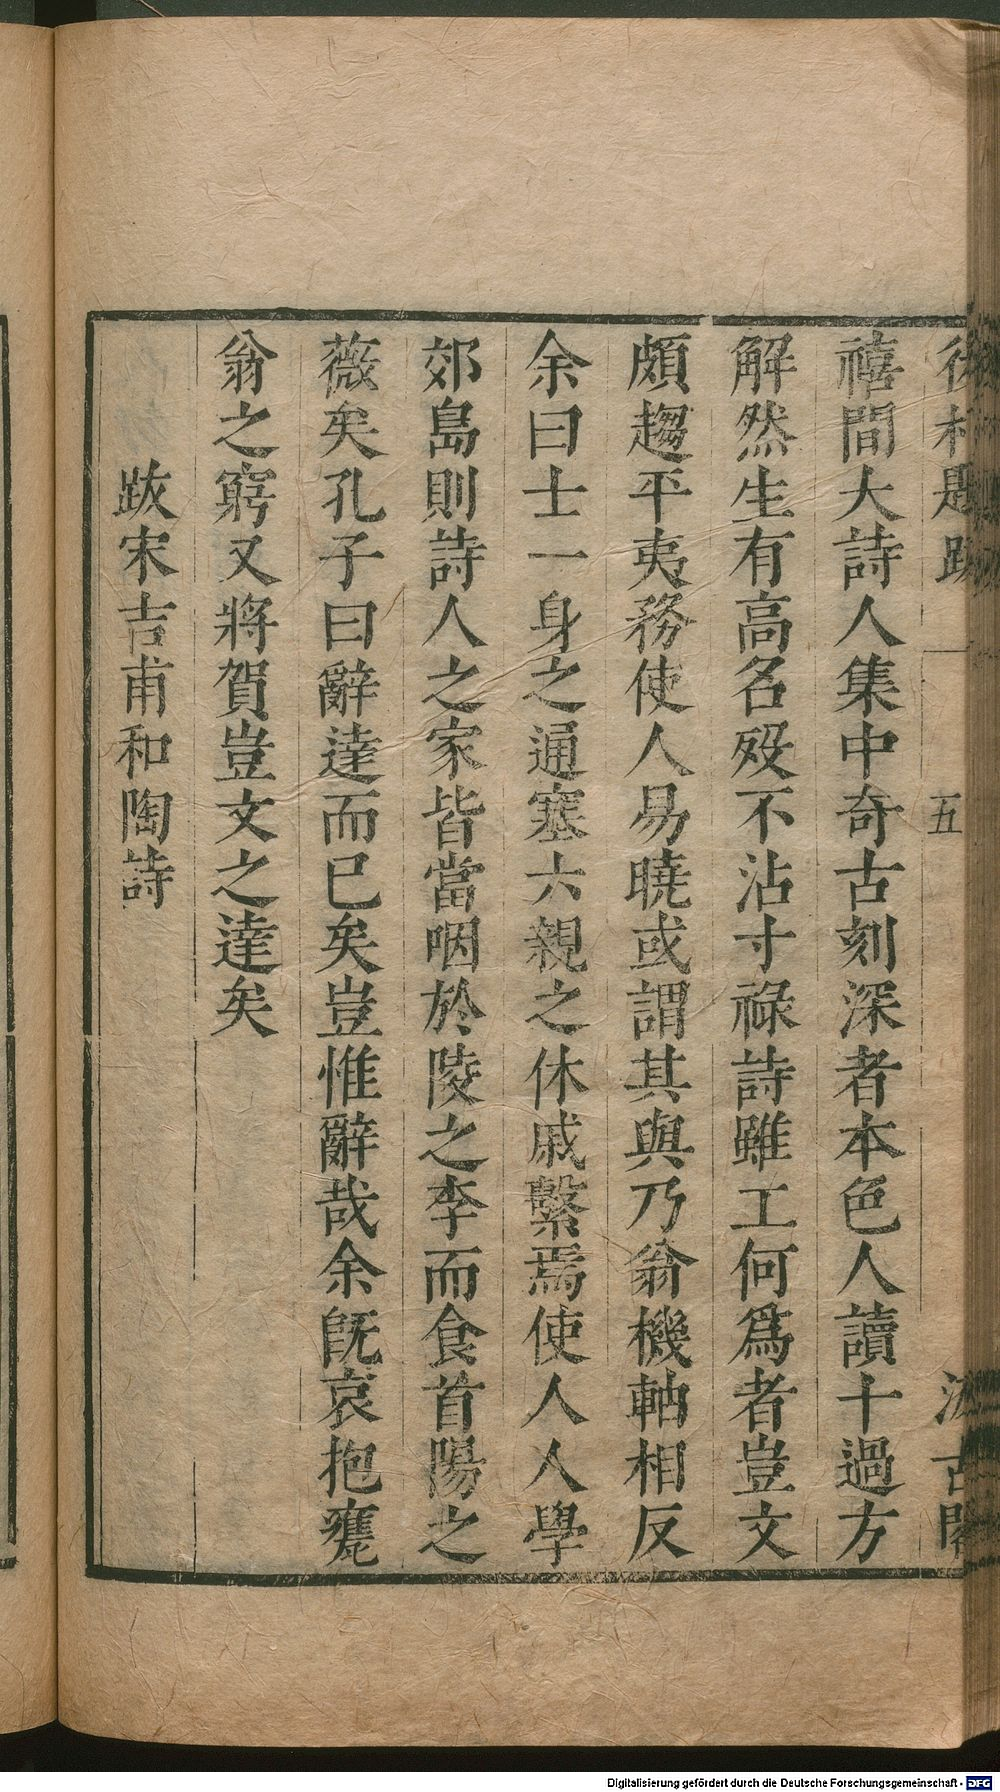 後村題跋 五 汲古閣
禧間大詩人集中奇古刻深者本色人讀十過方
解然生有高名歿不沾寸祿詩雖工何爲者豈文
頗趨平夷務使人易曉或謂其與乃翁機軸相反
余曰士一身之通塞六親之休戚繫焉使人人學
郊島則詩人之家皆當咽於陵之李而食首陽之
薇矣孔子曰辭達而已矣豈惟辭哉余旣哀抱甕
翁之窮又將賀豈文之達矣
跋宋吉甫和陶詩
Digitalisierung gefördert durch die Deutsche Forschungsgemeinschaft - DFG